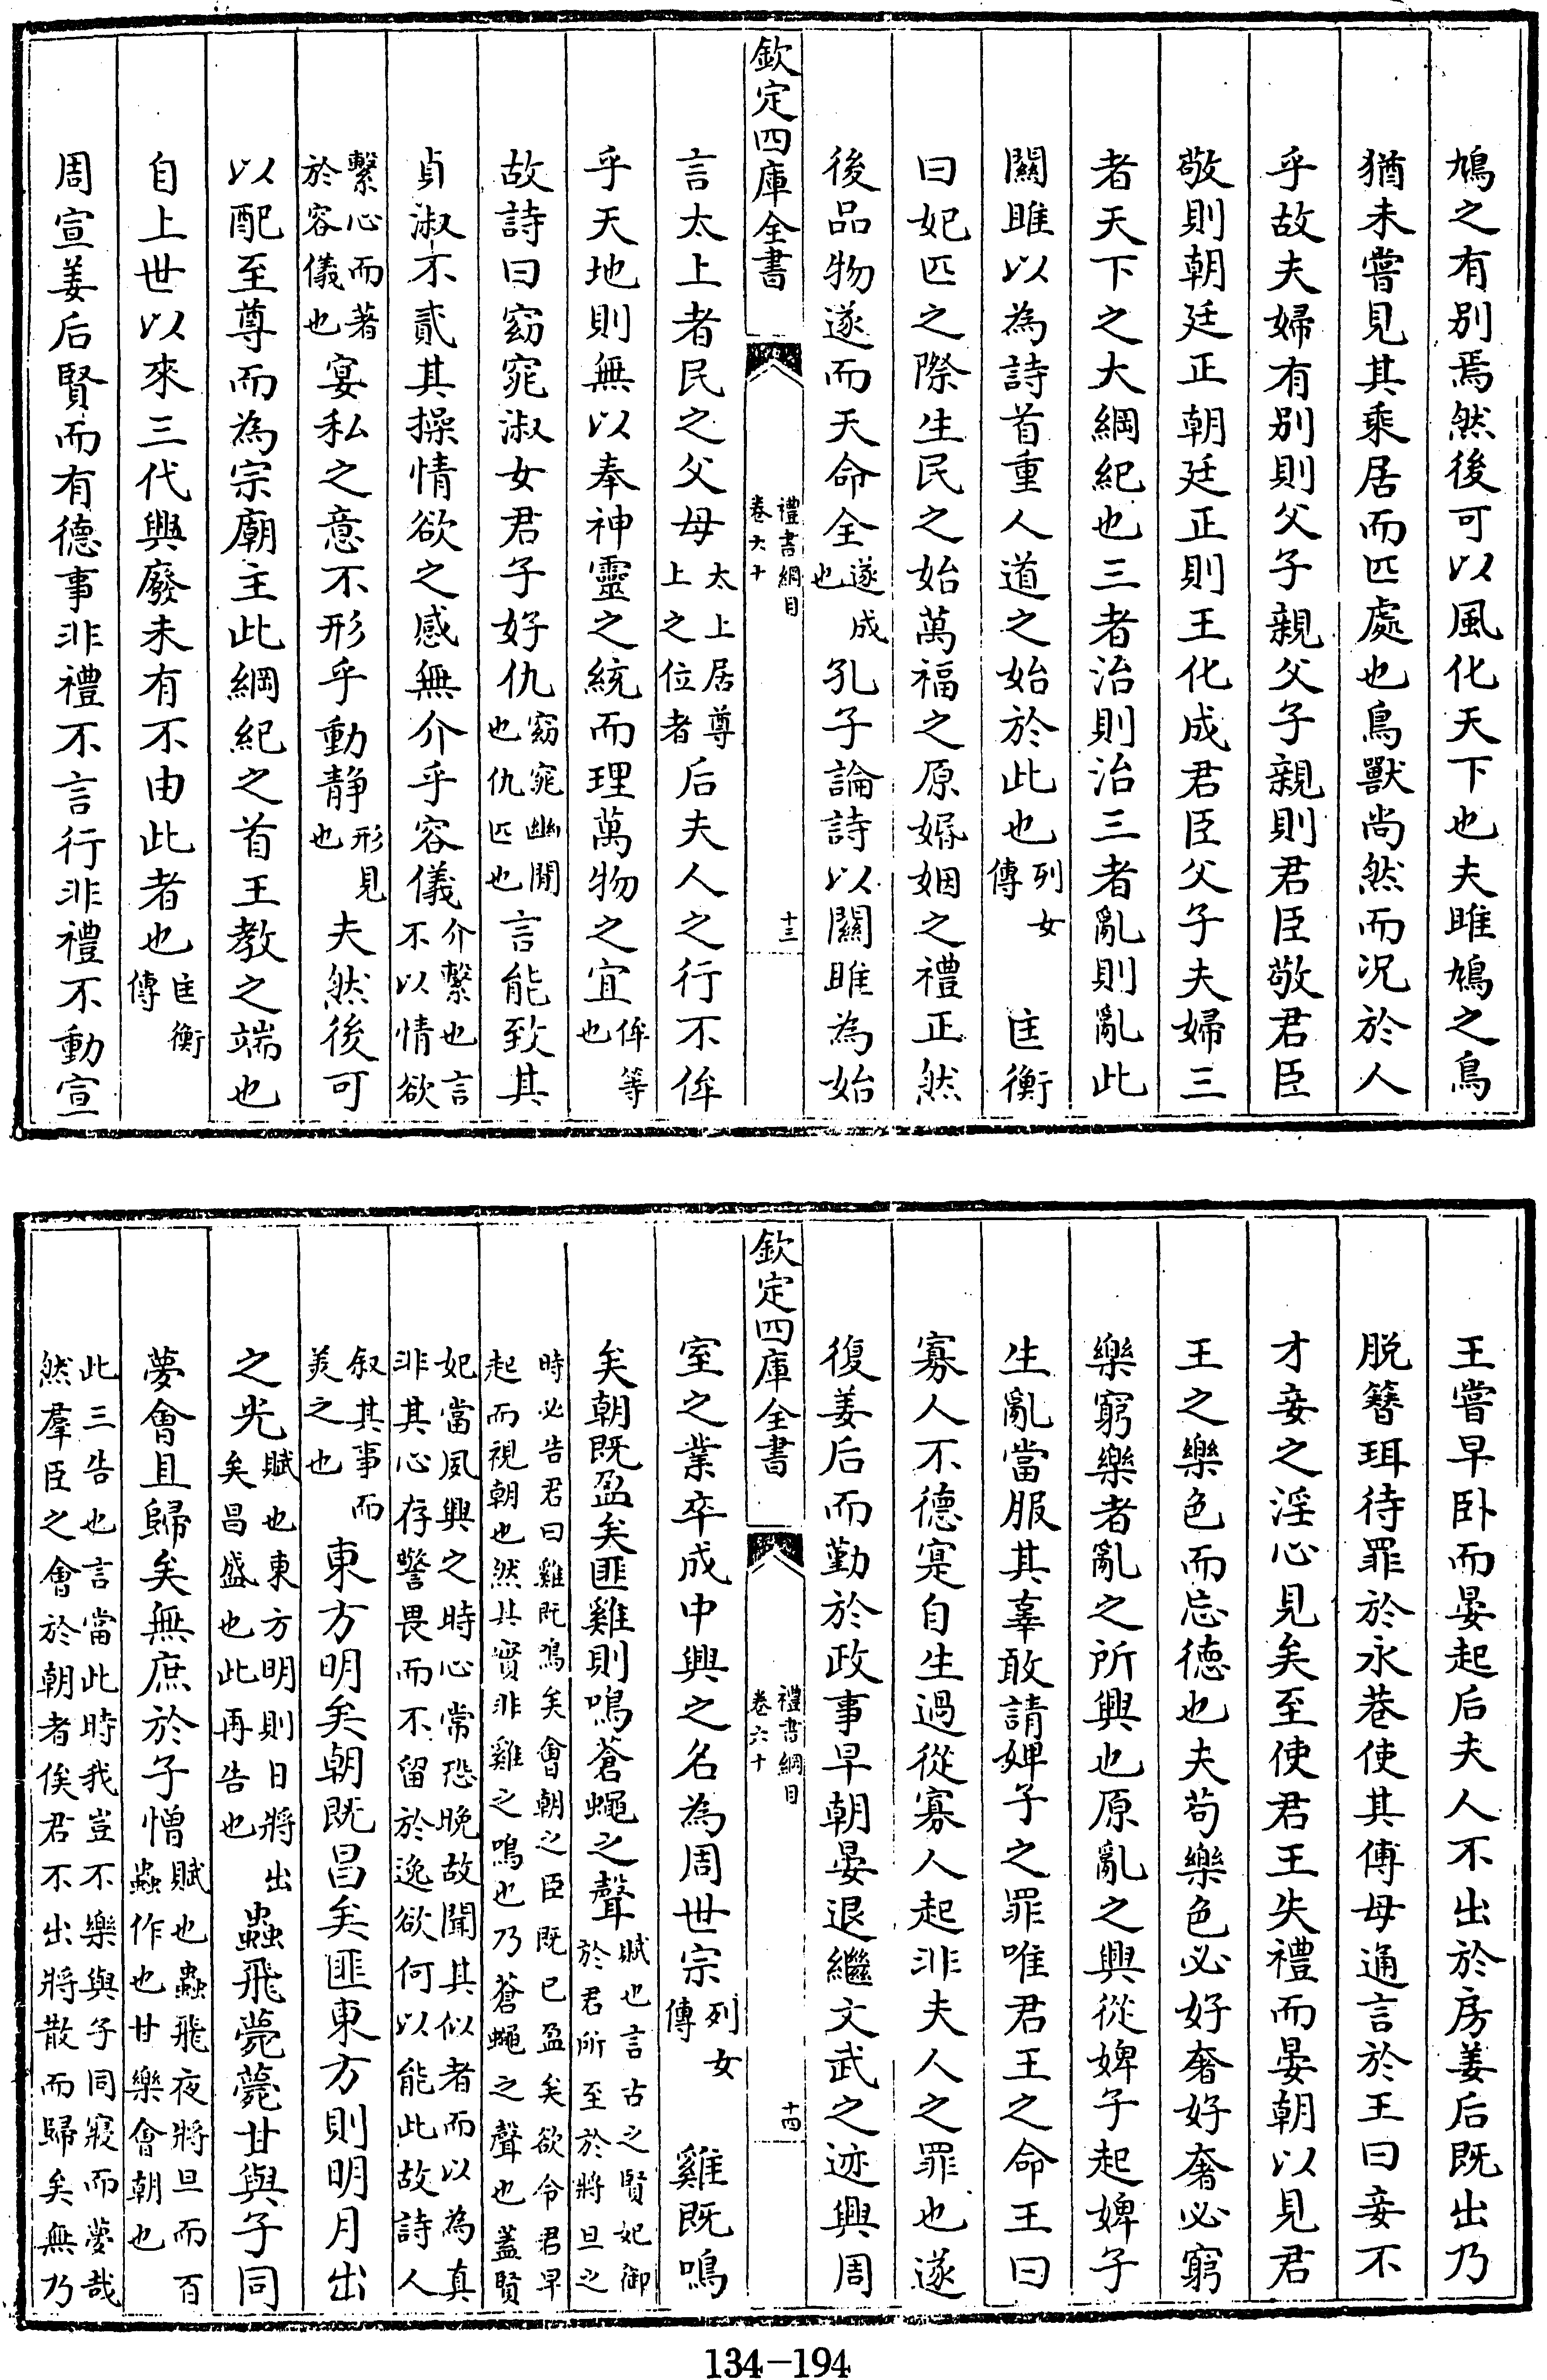 鳩之有别焉然後可以風化天下也夫雎鳩之鳥
猶未嘗見其乘居而匹處也鳥獸尚然而况於人
乎故夫婦有别則父子親父子親則君臣敬君臣
敬則朝廷正朝廷正則王化成君臣父子夫婦三
者天下之大綱紀也三者治則治三者亂則亂此
關雎以為詩首重人道之始於此也列女傳　匡衡
曰妃匹之際生民之始萬福之原婚姻之禮正然
後品物遂而天命全遂成也孔子論詩以關雎為始
欽定四庫全書　禮書綱目卷六十　十三
言太上者民之父母太上居尊上之位者后夫人之行不侔
乎天地則無以奉神靈之統而理萬物之宜侔等也
故詩曰窈窕淑女君子好仇窈窕幽閒也仇匹也言能致其
貞淑不貳其操情欲之感無介乎容儀介繫也言不以情欲
繫心而著於容儀也宴私之意不形乎動静形見也夫然後可
以配至尊而為宗廟主此綱紀之首王教之端也
自上世以來三代興廢未有不由此者也匡衡傳
周宣姜后賢而有德事非禮不言行非禮不動宣
王嘗早卧而晏起后夫人不出於房姜后既出乃
脱簪珥待罪於永巷使其傅母通言於王曰妾不
才妾之淫心見矣至使君王失禮而晏朝以見君
王之樂色而忘德也夫苟樂色必好奢好奢必窮
樂窮樂者亂之所興也原亂之興從婢子起婢子
生亂當服其辜敢請婢子之罪唯君王之命王曰
寡人不德寔自生過從寡人起非夫人之罪也遂
復姜后而勤於政事早朝晏退繼文武之迹興周
欽定四庫全書　禮書綱目卷六十　十四
室之業卒成中興之名為周世宗列女傳　雞既鳴
矣朝既盈矣匪雞則鳴蒼蠅之聲賦也言古之賢妃御於君所至於將旦之
時必告君曰雞既鳴矣會朝之臣既已盈矣欲令君早起而視朝也然其實非雞之鳴也乃蒼蠅之聲也蓋賢
妃當夙興之時心常恐晚故聞其似者而以為真非其心存警畏而不留於逸欲何以能此故詩人
叙其事而美之也東方明矣朝既昌矣匪東方則明月出
之光賦也東方明則日將出矣昌盛也此再告也蟲飛薨薨甘與子同
夢會且歸矣無庶於子憎賦也蟲飛夜將旦而百蟲作也甘樂會朝也
此三告也言當此時我豈不樂與子同寢而夢哉然羣臣之會於朝者俟君不出將散而歸矣無乃
134-194